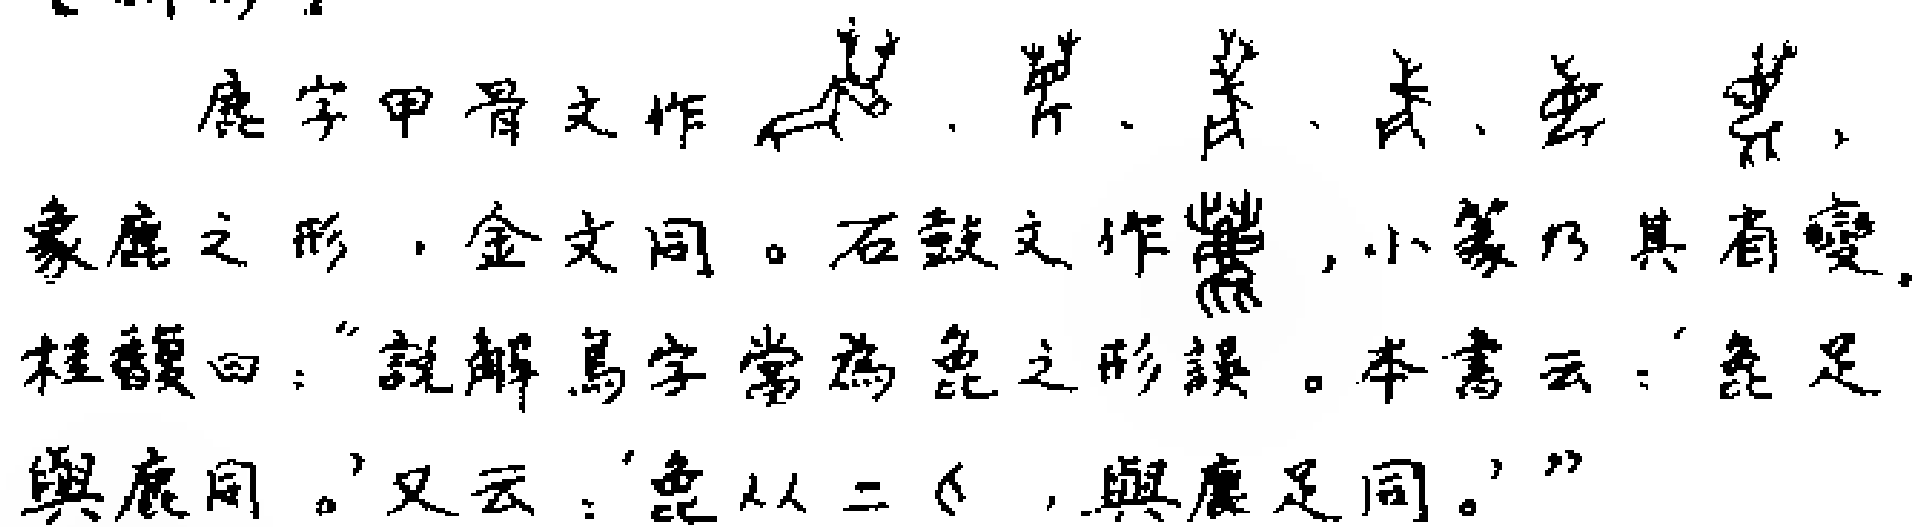 鹿字甲骨文作、、、、，
象鹿之形，金文同。石鼓文作，小篆乃其省變。
桂馥曰："說解鳥字當為㲋之形誤。本書云：'㲋足
與鹿同。'又云：'㲋从二匕，與鹿足同。'"